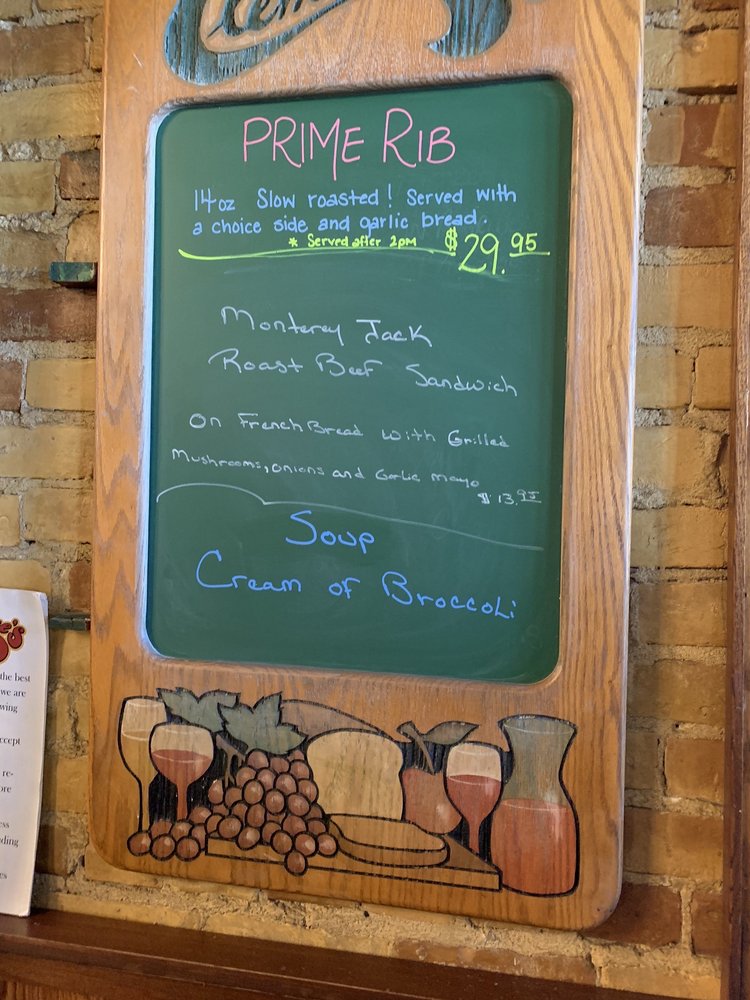 PRIME RIB
14oz Slow roasted! Served with
a choice side and garlic bread.
* Served after 2pm $29.95
Monterey Jack
Roast Beef Sandwich
On French Bread with Grilled
Mushrooms, onions and Garlic mayo
$13.95
Soup
Cream of Broccoli
e's
the best
we are
wing
ccept
re-
ore
ess
ding
es